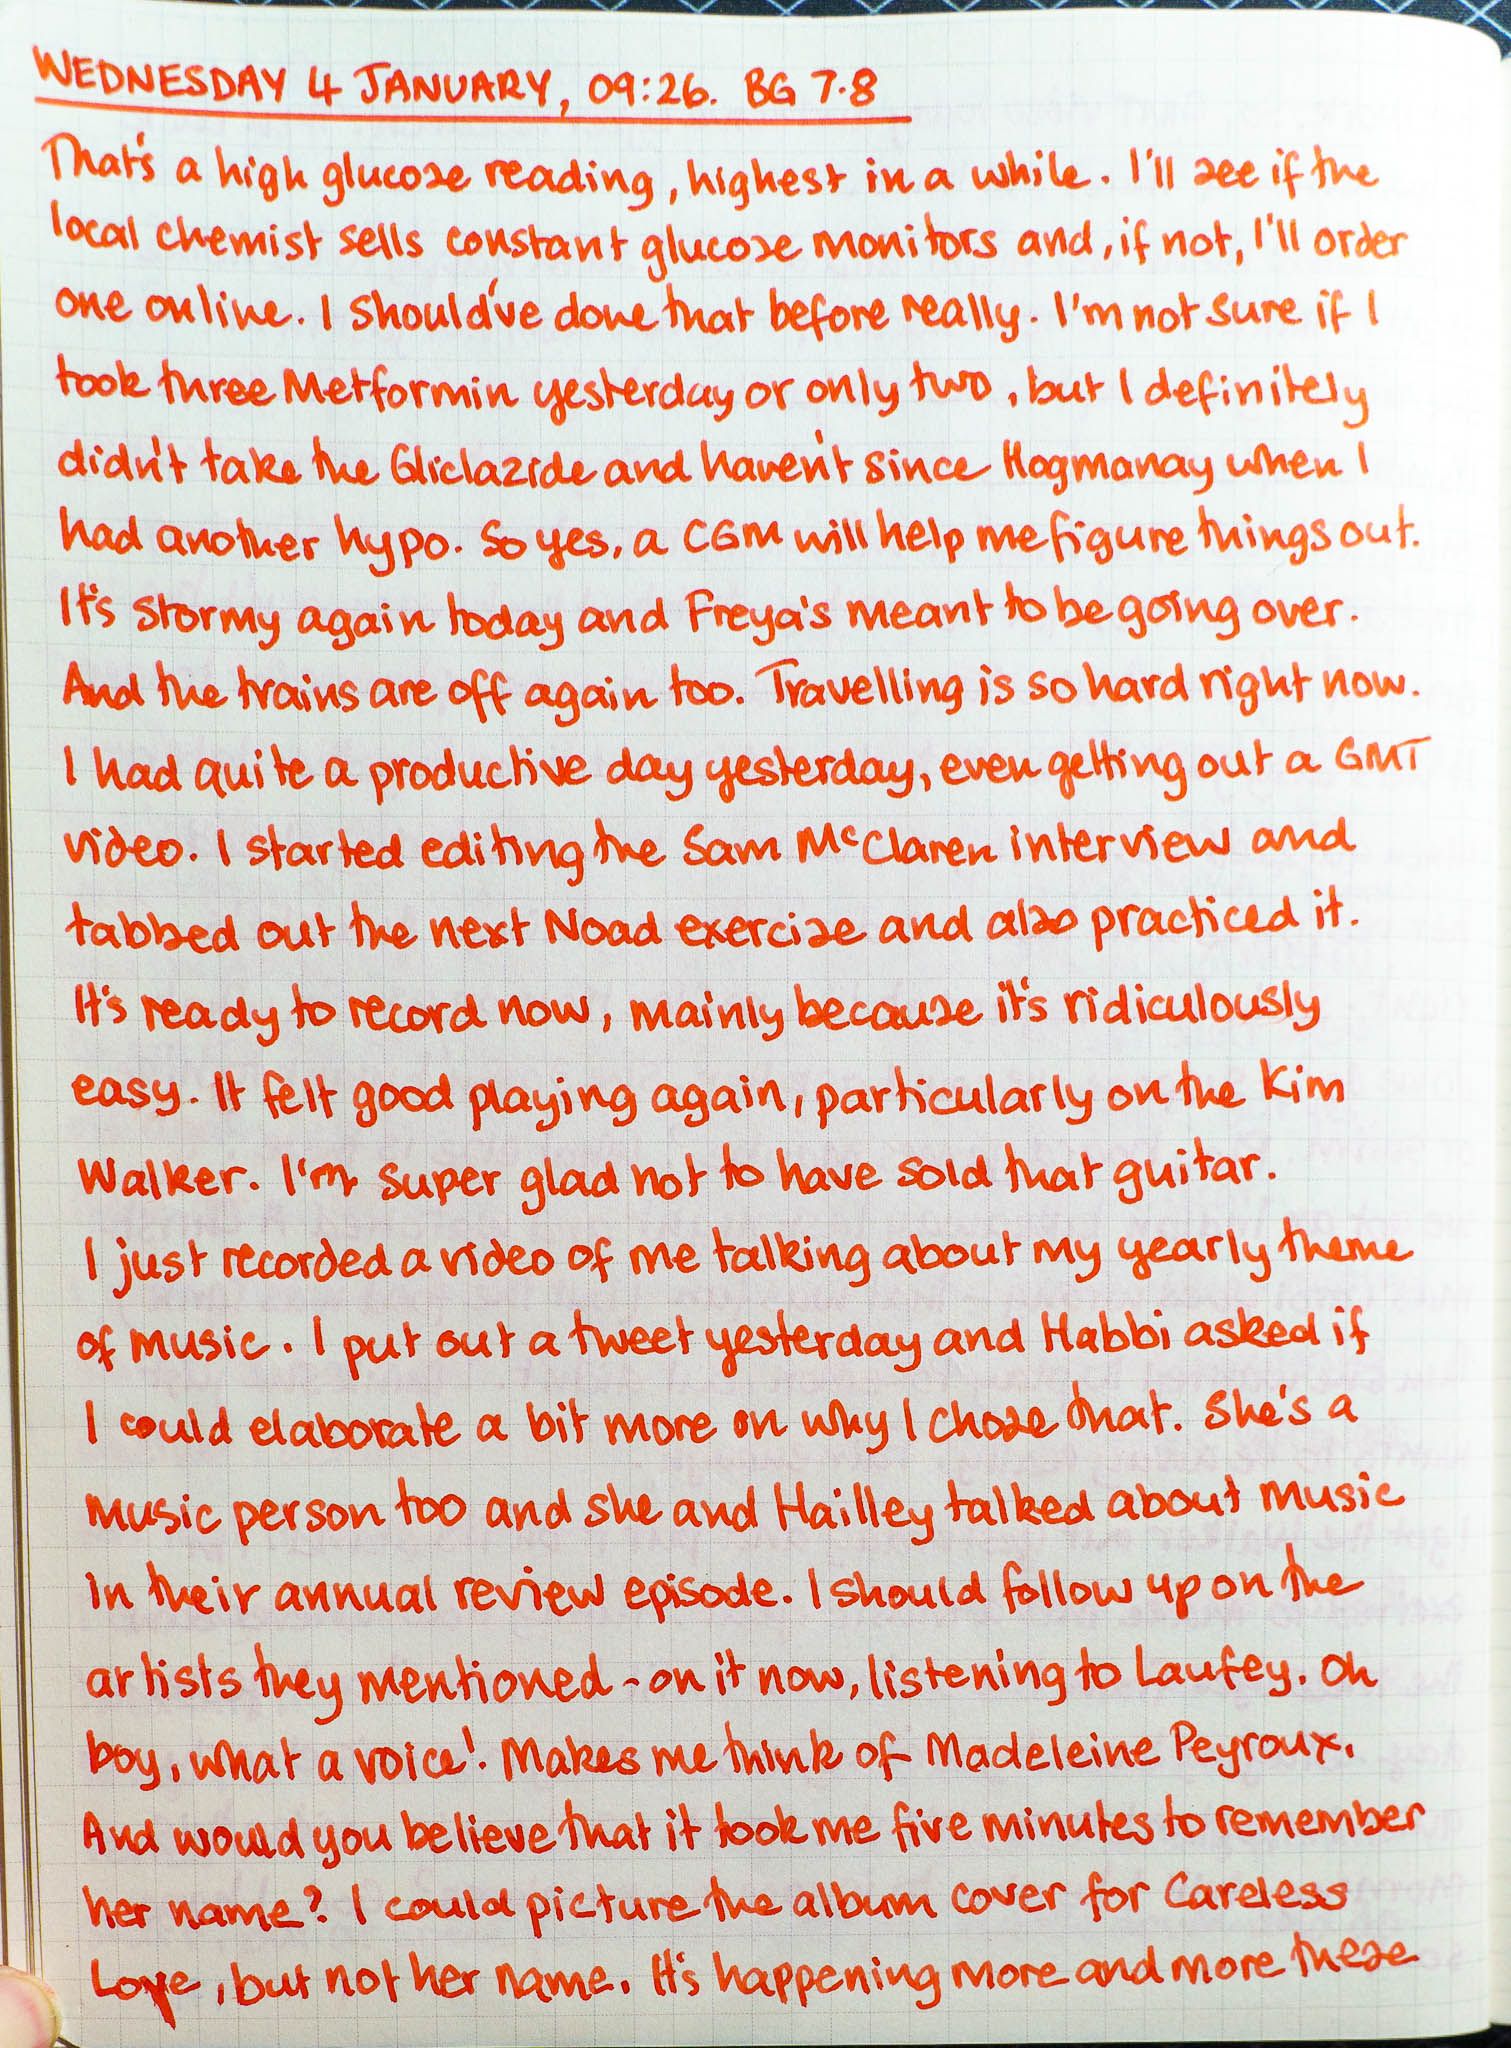 WEDNESDAY 4 JANUARY, 09:26. BG 7.8
That's a high glucose reading, highest in a while. I'll see if the
local chemist sells constant glucose monitors and, if not, I'll order
one online. I should've done that before really. I'm not sure if I
took three Metformin yesterday or only two, but I definitely
didn't take the Gliclazide and haven't since Hogmanay when I
had another hypo. So yes, a CGM will help me figure things out.
It's stormy again today and Freya's meant to be going over.
And the trains are off again too. Travelling is so hard right now.
I had quite a productive day yesterday, even getting out a GMT
video. I started editing the Sam McClaren interview and
tabbed out the next Noad exercise and also practiced it.
It's ready to record now, mainly because it's ridiculously
easy. It felt good playing again, particularly on the Kim
Walker. I'm super glad not to have sold that guitar.
I just recorded a video of me talking about my yearly theme
of music. I put out a tweet yesterday and Habbi asked if
I could elaborate a bit more on why I chose that. She's a
music person too and she and Hailley talked about music
in their annual review episode. I should follow up on the
artists they mentioned - on it now, listening to Laufey. Oh
boy, what a voice! Makes me think of Madeleine Peyroux.
And would you believe that it took me five minutes to remember
her name? I could picture the album cover for Careless
Love, but not her name. It's happening more and more these